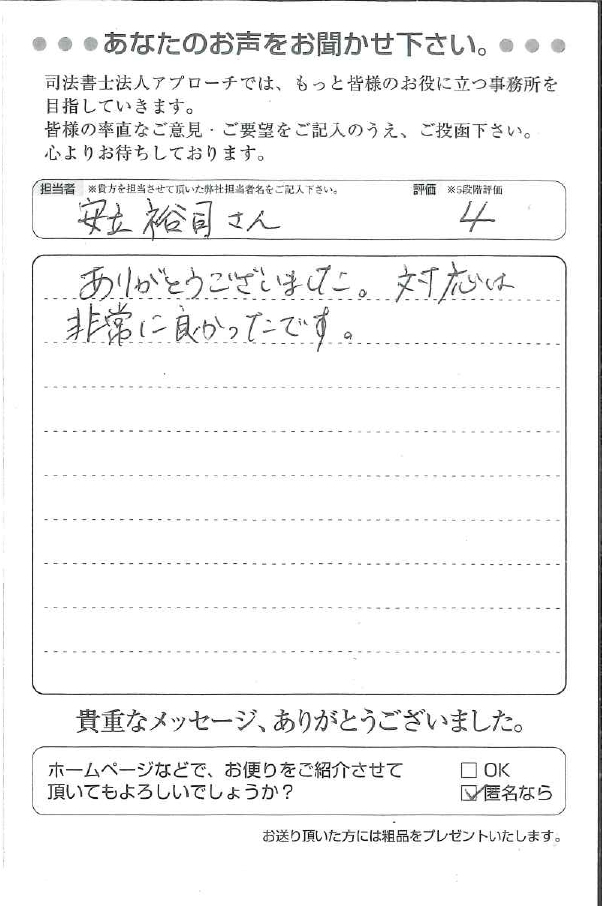 ●●●あなたのお声をお聞かせ下さい。●●●
司法書士法人アプローチでは、もっと皆様のお役に立つ事務所を
目指していきます。
皆様の率直なご意見・ご要望をご記入のうえ、ご投函下さい。
心よりお待ちしております。
担当者 ※貴方を担当させて頂いた弊社担当者名をご記入下さい。 評価 ※5段階評価
安立 裕司さん 4
ありがとうございました。対応は
非常に良かったです。
貴重なメッセージ、ありがとうございました。
ホームページなどで、お便りをご紹介させて □ OK
頂いてもよろしいでしょうか？ ☑匿名なら
お送り頂いた方には粗品をプレゼントいたします。